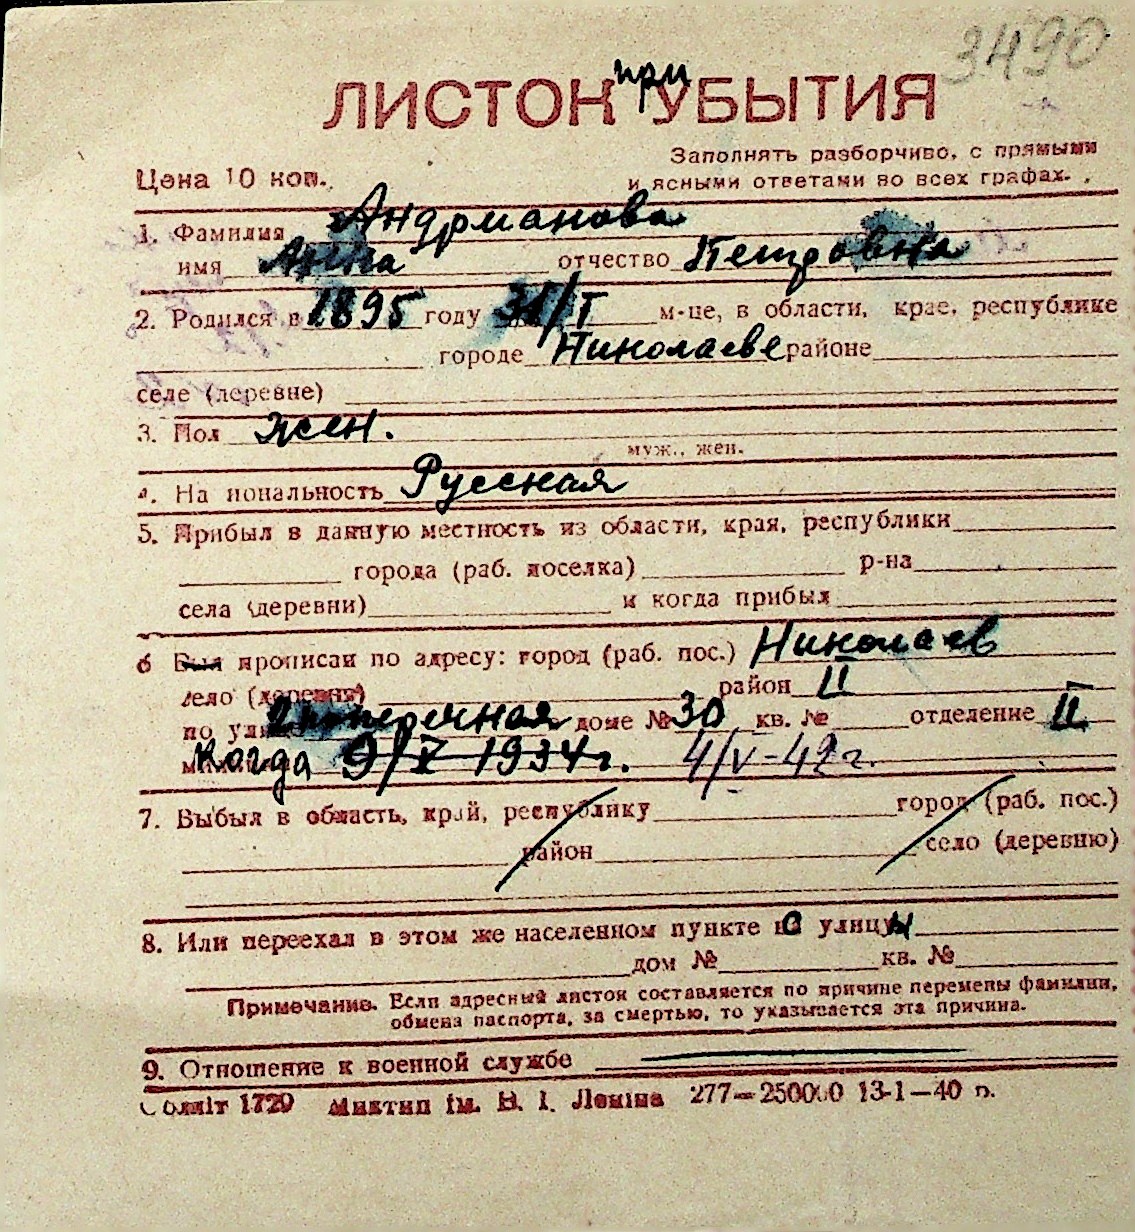 3490
при
ЛИСТОК УБЫТИЯ
Заполнять разборчиво, с прямыми
Цена 10 коп. и ясными ответами во всех графах.
1. Фамилия Андрманова
имя Анна отчество Петровна
2. Родился в 1895 году 31/I м-це, в области, крае, республике
городе Николаеве районе
селе (деревне)
3. Пол жен.
муж., жен.
4. Национальность Русская
5. Прибыл в данную местность из области, края, республики
города (раб. поселка) р-на
села (деревни) и когда прибыл
6 Был прописан по адресу: город (раб. пос.) Николаев
село (деревня) район II
по улице поперечная доме № 30 кв. № отделение II
Когда 9/X 1934 г. 4/V-42 г.
7. Выбыл в область, край, республику город (раб. пос.)
район село (деревню)
8. Или переехал в этом же населенном пункте с улицы
дом № кв. №
Примечание. Если адресный листок составляется по причине перемены фамилии,
обмена паспорта, за смертью, то указывается эта причина.
9. Отношение к военной службе
Облліт 1720 Миктип ім. В. І. Леніна 277—250000 13-1—40 р.